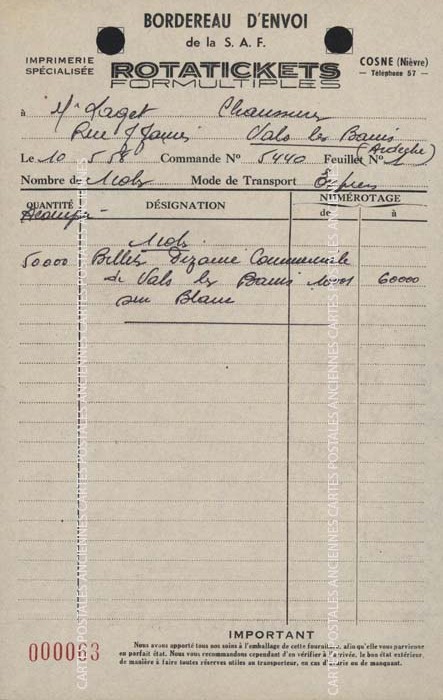 BORDEREAU D'ENVOI
de la S. A. F.
IMPRIMERIE SPÉCIALISÉE
ROTATICKETS
FORMULTIPLES
COSNE (Nièvre)
— Téléphone 57 —
à Mr Laget Chaussures
Rue J Jaurès Vals les Bains
(Ardèche)
Le 10 5 58 Commande N° 5440 Feuillet N° 1
Nombre de Mode de Transport Express
QUANTITÉ DÉSIGNATION NUMÉROTAGE
de à
50000 Billets Dizaine Commerciale
de Vals les Bains 10001 60000
sur Blanc
CARTES POSTALES ANCIENNES CARTES POSTALES ANCIENNES
CARTES POSTALES ANCIENNES CARTES POSTALES ANCIENNES
IMPORTANT
Nous avons apporté tous nos soins à l'emballage de cette fourniture, afin qu'elle vous parvienne
en parfait état. Nous vous recommandons cependant d'en vérifier à l'arrivée, le bon état extérieur,
de manière à faire toutes réserves utiles au transporteur, en cas d'avarie ou de manquant.
000063